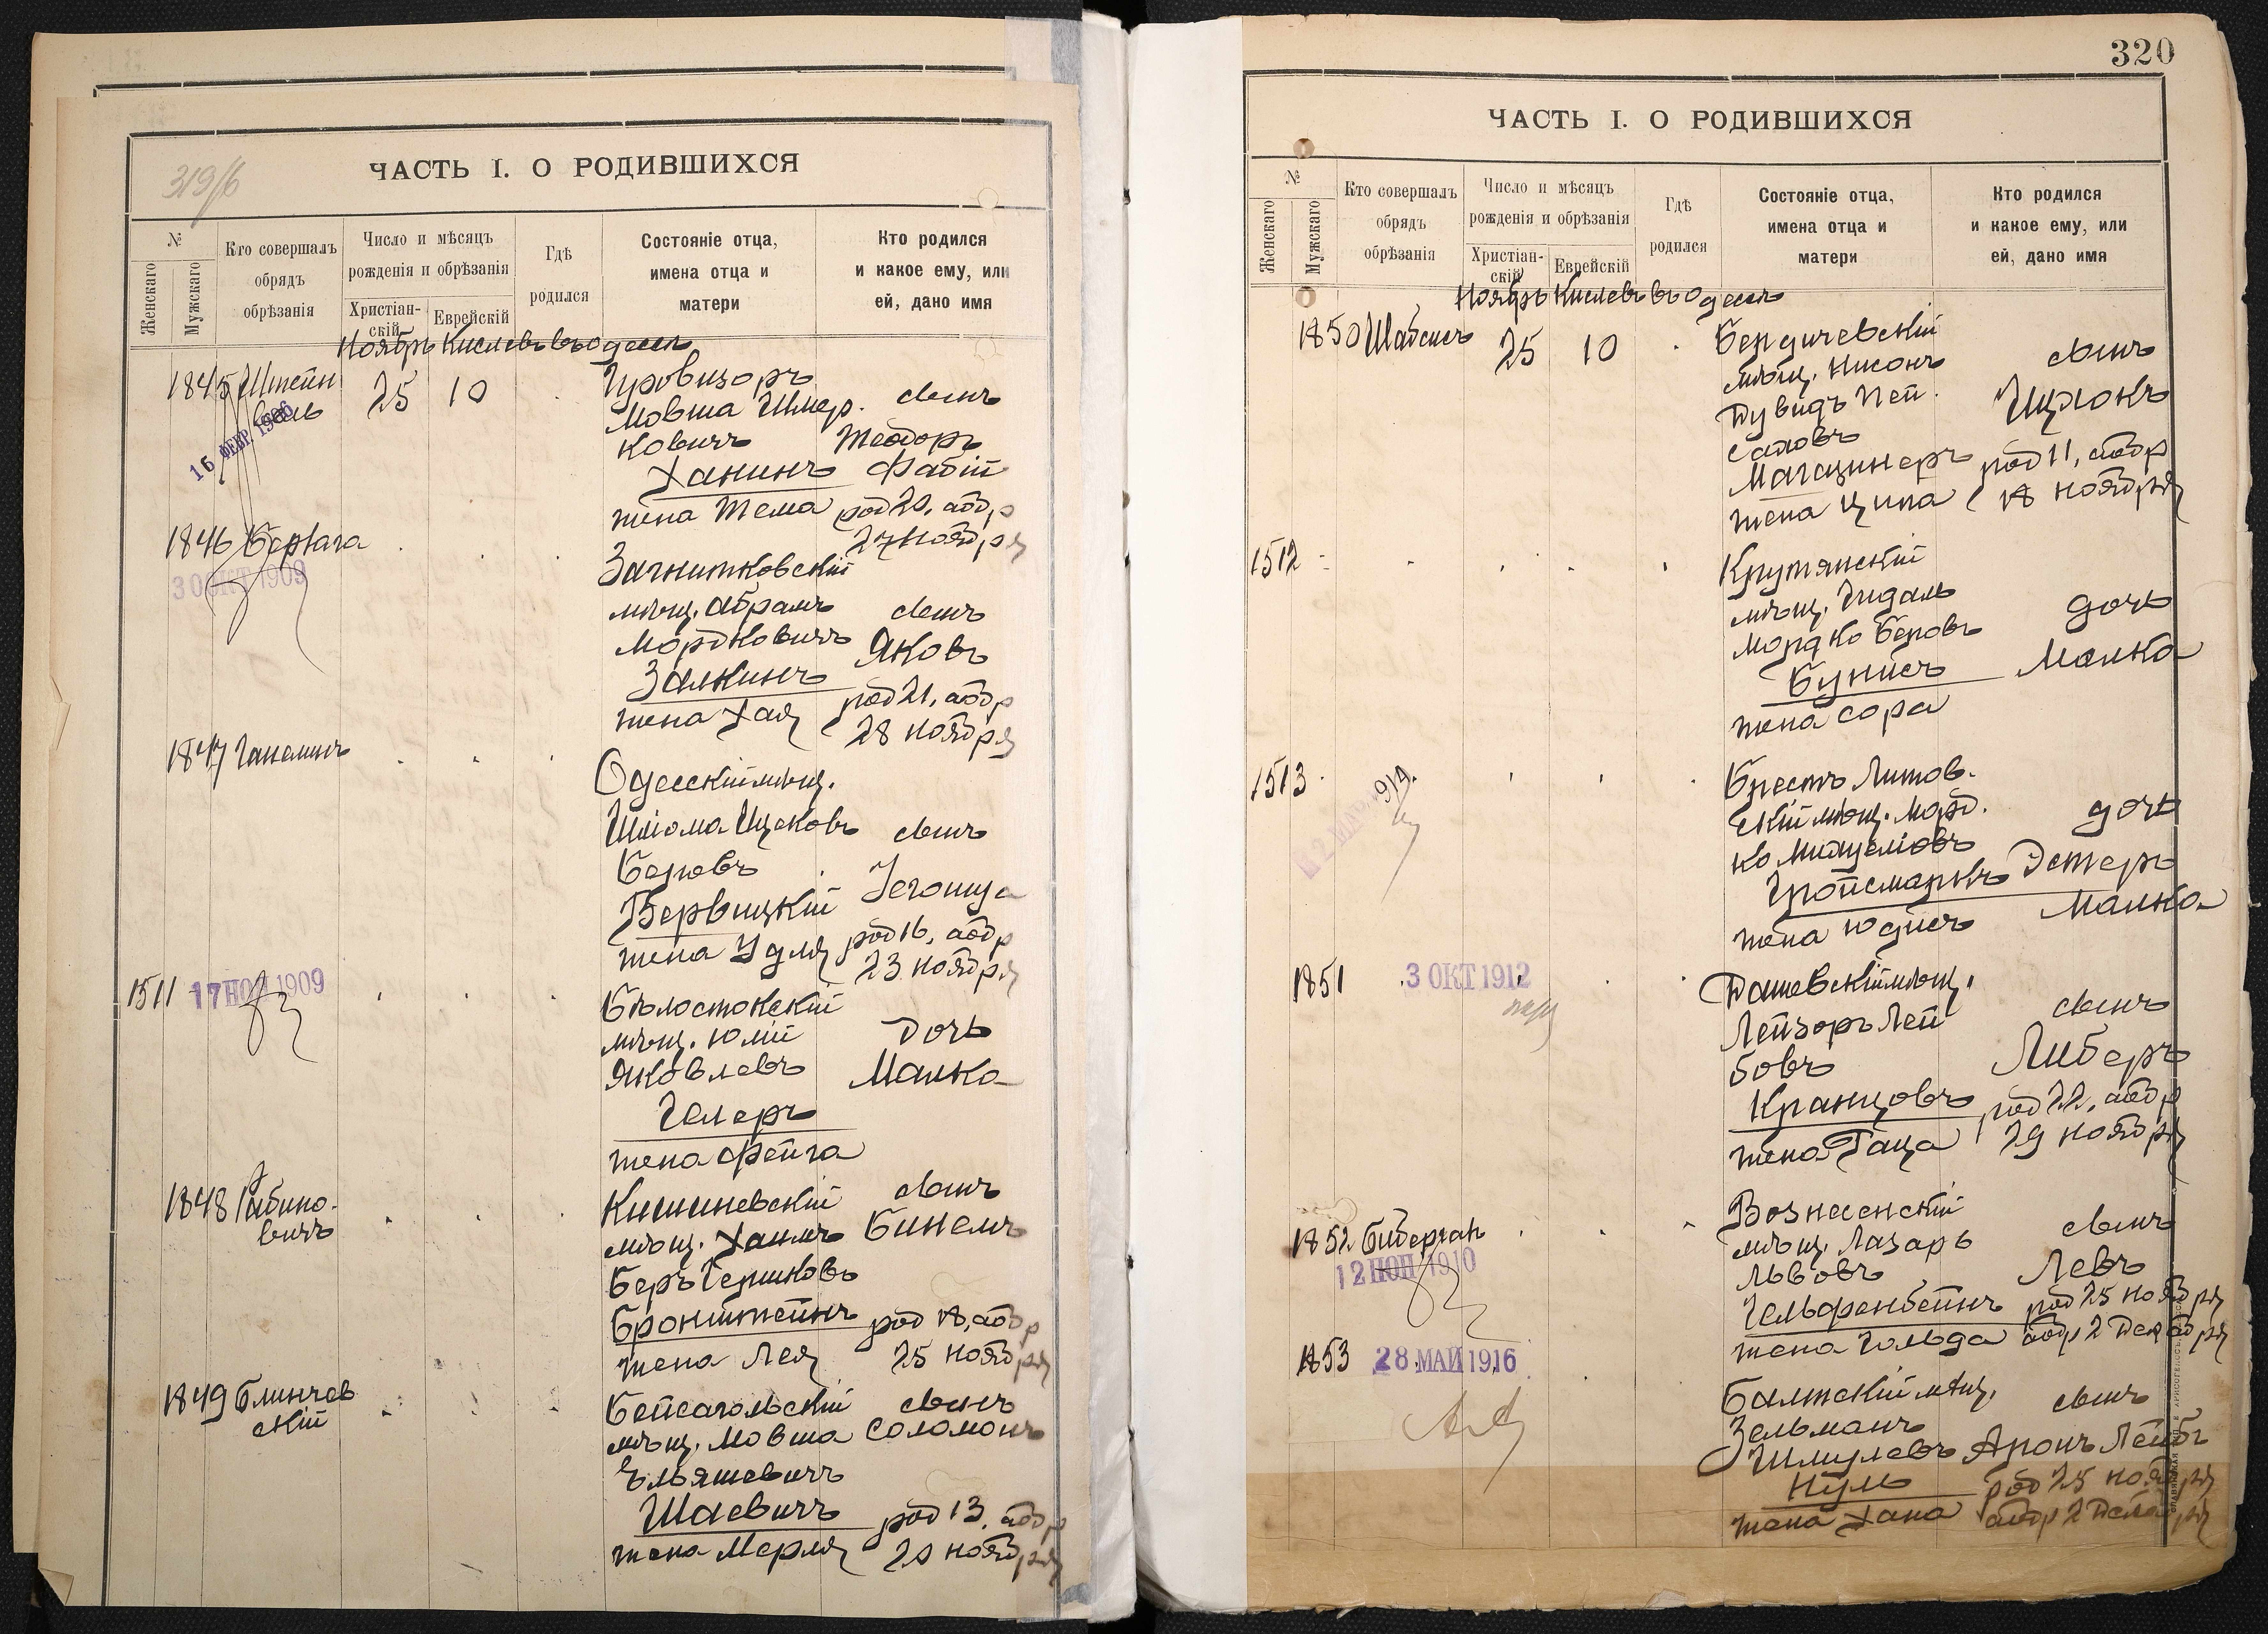 319/б
ЧАСТЬ I. О РОДИВШИХСЯ
№
Женскаго
Мужскаго
Кто совершалъ
обрядъ
обрѣзанія
Число и мѣсяцъ
рожденія и обрѣзанія
Христіан-
скій
Еврейскій
Гдѣ
родился
Состояніе отца,
имена отца и
матери
Кто родился
и какое ему, или
ей, дано имя
Ноябрь Кислевъ въ Одессѣ
1845 Штейн
25 10
Провизоръ
Мовша Шмер.
ковичъ
Ханинъ
жена Тема
сынъ
Теодоръ
Фабій
род 20, обр
27 ноября
16 ФЕВР. 1906
1846
30 ОКТ 1909
Загнитковскій
мѣщ. Абрамъ
Мордковичъ
Залкинъ
жена Хая
сынъ
Яковъ
род 21, обр
28 ноября
1847 Ганелинъ
Одесскій мѣщ.
Шлiома Ицковъ
Беровъ
Вервицкій
жена Удля
сынъ
Iегошуа
род 16, обр
23 ноября
1511
17 НОЯ 1909
Бѣлостокскій
мѣщ. Юлій
Яковлевъ
Гелеръ
жена Фейга
дочь
Малка
1848 Рабино-
вичъ
Кишиневскій
мѣщ. Хаимъ
Беръ Гершковъ
Бронштейнъ
жена Лея
сынъ
Бинемъ
род 18, обр
25 ноября
1849 Блинчев
скій
Бейсагольскій
мѣщ. Мовша
Ельяшевичъ
Шаевичъ
жена Мерля
сынъ
Соломонъ
род 13, обр
20 ноября
320
ЧАСТЬ I. О РОДИВШИХСЯ
№
Женскаго
Мужскаго
Кто совершалъ
обрядъ
обрѣзанія
Число и мѣсяцъ
рожденія и обрѣзанія
Христіан-
скій
Еврейскій
Гдѣ
родился
Состояніе отца,
имена отца и
матери
Кто родился
и какое ему, или
ей, дано имя
Ноябрь Кислевъ въ Одессѣ
1850 Шабсисъ
25 10
Бердичевскій
мѣщ. Нисонъ
Дувидъ Пей.
саховъ
Магазинеръ
жена Ципа
сынъ
Ицхокъ
род 11, обр
18 ноября
1512
Крутянскій
мѣщ. Гидаль
Мордко Беровъ
Бунисъ
жена Сора
дочь
Малка
1513
Брестъ Литов.
скій мѣщ. Морд.
ко
Гройсмаркъ
жена Юдисъ
дочь
Эстеръ
Малка
1851
3 ОКТ 1912
Дашевскій мѣщ.
Лейзоръ Лей
бовъ
Кранцовъ
жена Гаца
сынъ
Либеръ
род 22, обр
29 ноября
1852
12 НОЯ 1910
Вознесенскій
мѣщ. Лазарь
Львовъ
Гельфенбейнъ
жена Гольда
сынъ
Левъ
род 25 ноября
обр 2 Декабря
1853
28 МАЙ 1916
Балтскій мѣщ.
Зельманъ
Шмулевъ
Нуль
жена Хана
сынъ
Аронъ Лейбъ
род 25 ноября
обр 2 Декабря